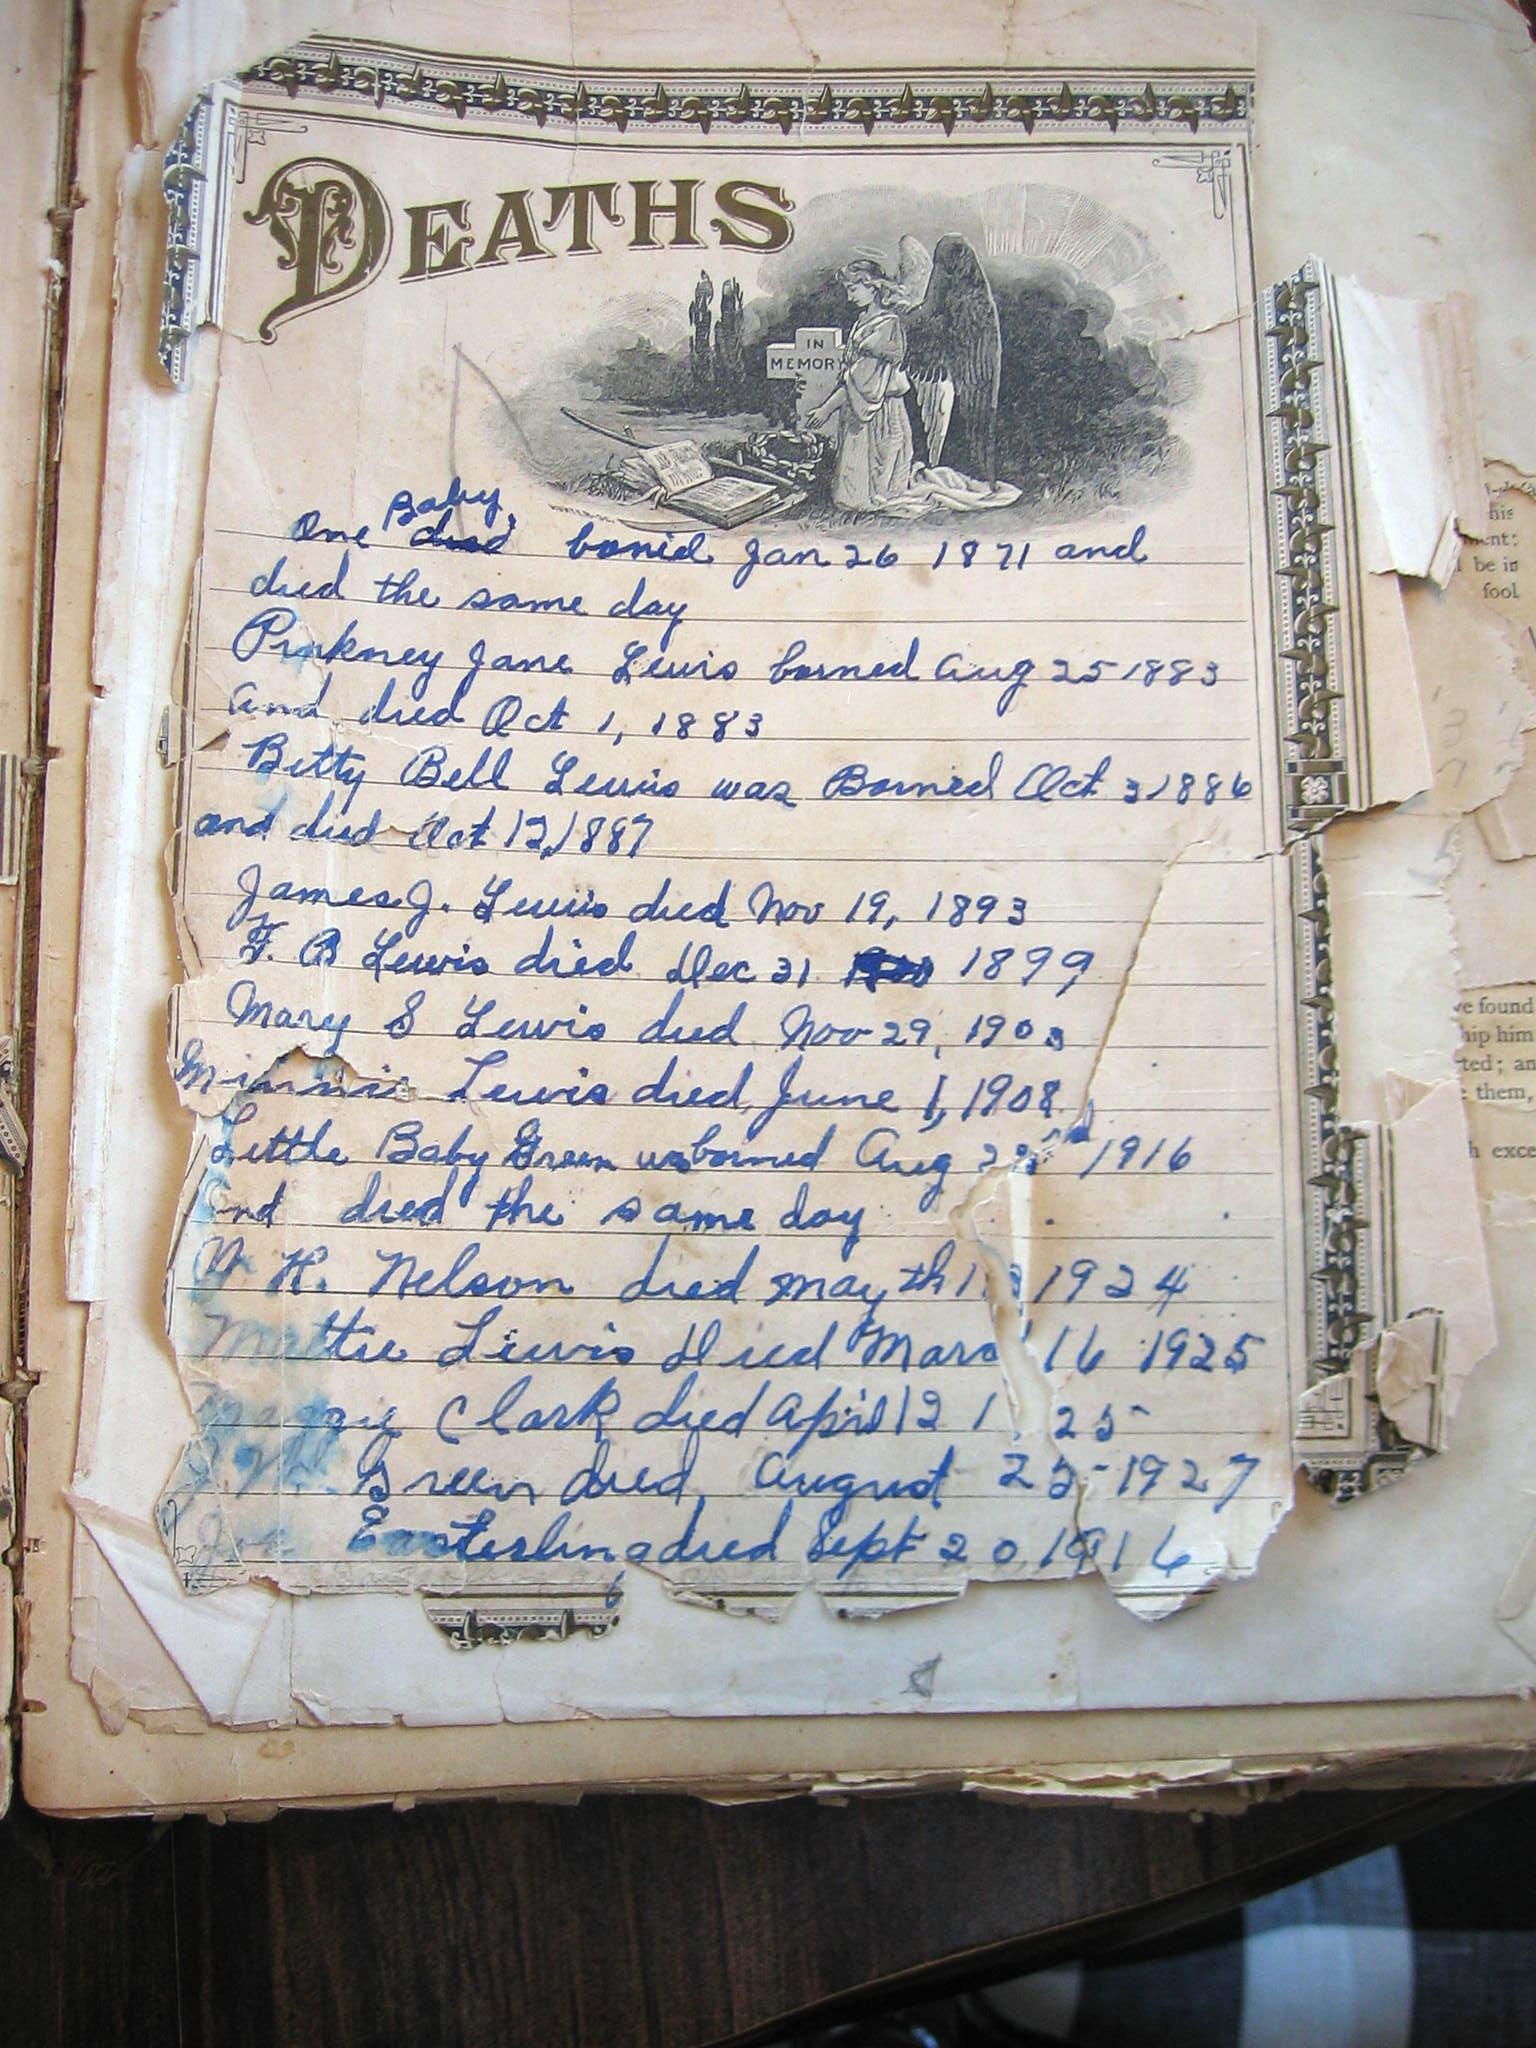 DEATHS
IN
MEMORY
Baby
One died borned Jan 26 1871 and
died the same day
Pinkney Jane Lewis borned Aug 25 1883
and died Oct 1, 1883
Betty Bell Lewis was Borned Oct 3 1886
and died Oct 12, 1887
James J. Lewis died Nov 19, 1893
F. B Lewis died Dec 31 1899
Mary S Lewis died Nov 29, 1903
Minnie Lewis died June 1, 1908
Little Baby Green was borned Aug 1916
and died the same day
H. Nelson died May th 1924
Mattie Lewis Died 16 1925
Clark died April 12 1 25
Green died August 25 1927
Easterling died Sept 20, 1916
his
ment:
be in
fool
ve found
hip him
ted; an
them,
h exce